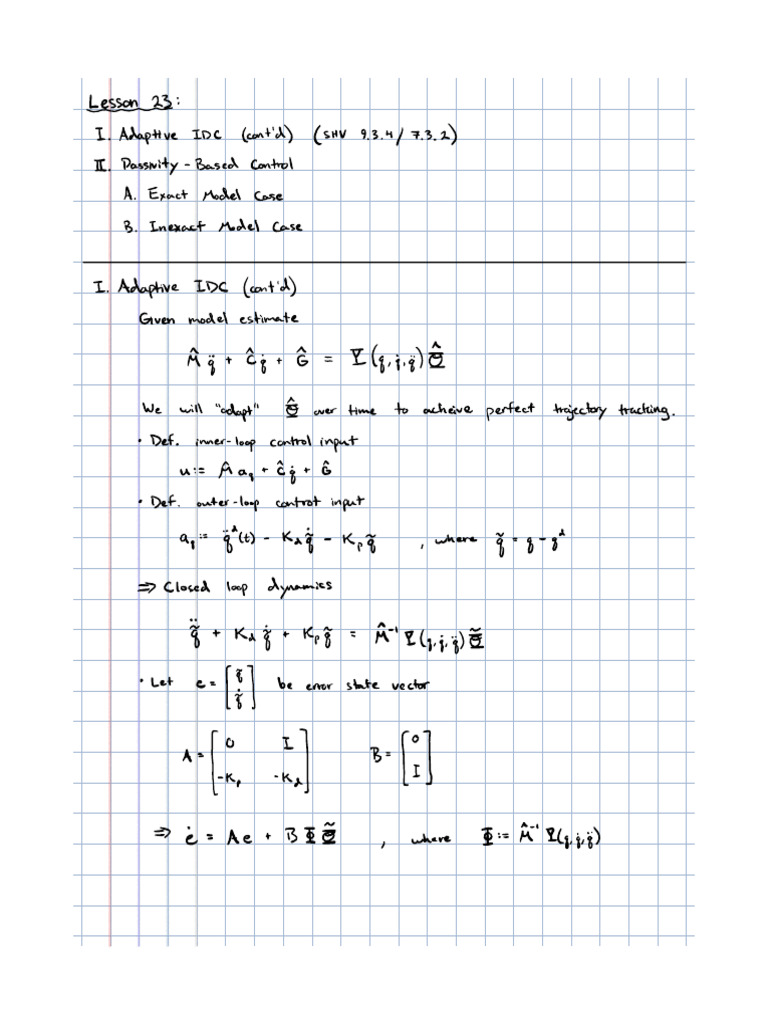 Lesson 23:
I. Adaptive IDC (cont'd) (SHV 9.3.4 / 7.3.2)
II. Passivity-Based Control
A. Exact Model Case
B. Inexact Model Case
I. Adaptive IDC (cont'd)
Given model estimate
M̂ q̈ + Ĉ q̇ + Ĝ = Ψ(q, q̇, q̈) Θ̂
We will "adapt" Θ̂ over time to acheive perfect trajectory tracking.
• Def. inner-loop control input
u := M̂ a_q + Ĉ q̇ + Ĝ
• Def. outer-loop control input
a_q := q̈^d(t) - K_d q̃̇ - K_p q̃ , where q̃ = q - q^d
⇒ Closed loop dynamics
q̃̈ + K_d q̃̇ + K_p q̃ = M̂⁻¹ Ψ(q, q̇, q̈) Θ̃
• Let e = [q̃ ; q̃̇] be error state vector
A = [0 I ; -K_p -K_d] B = [0 ; I]
⇒ ė = Ae + BΦΘ̃ , where Φ := M̂⁻¹ Ψ(q, q̇, q̈)